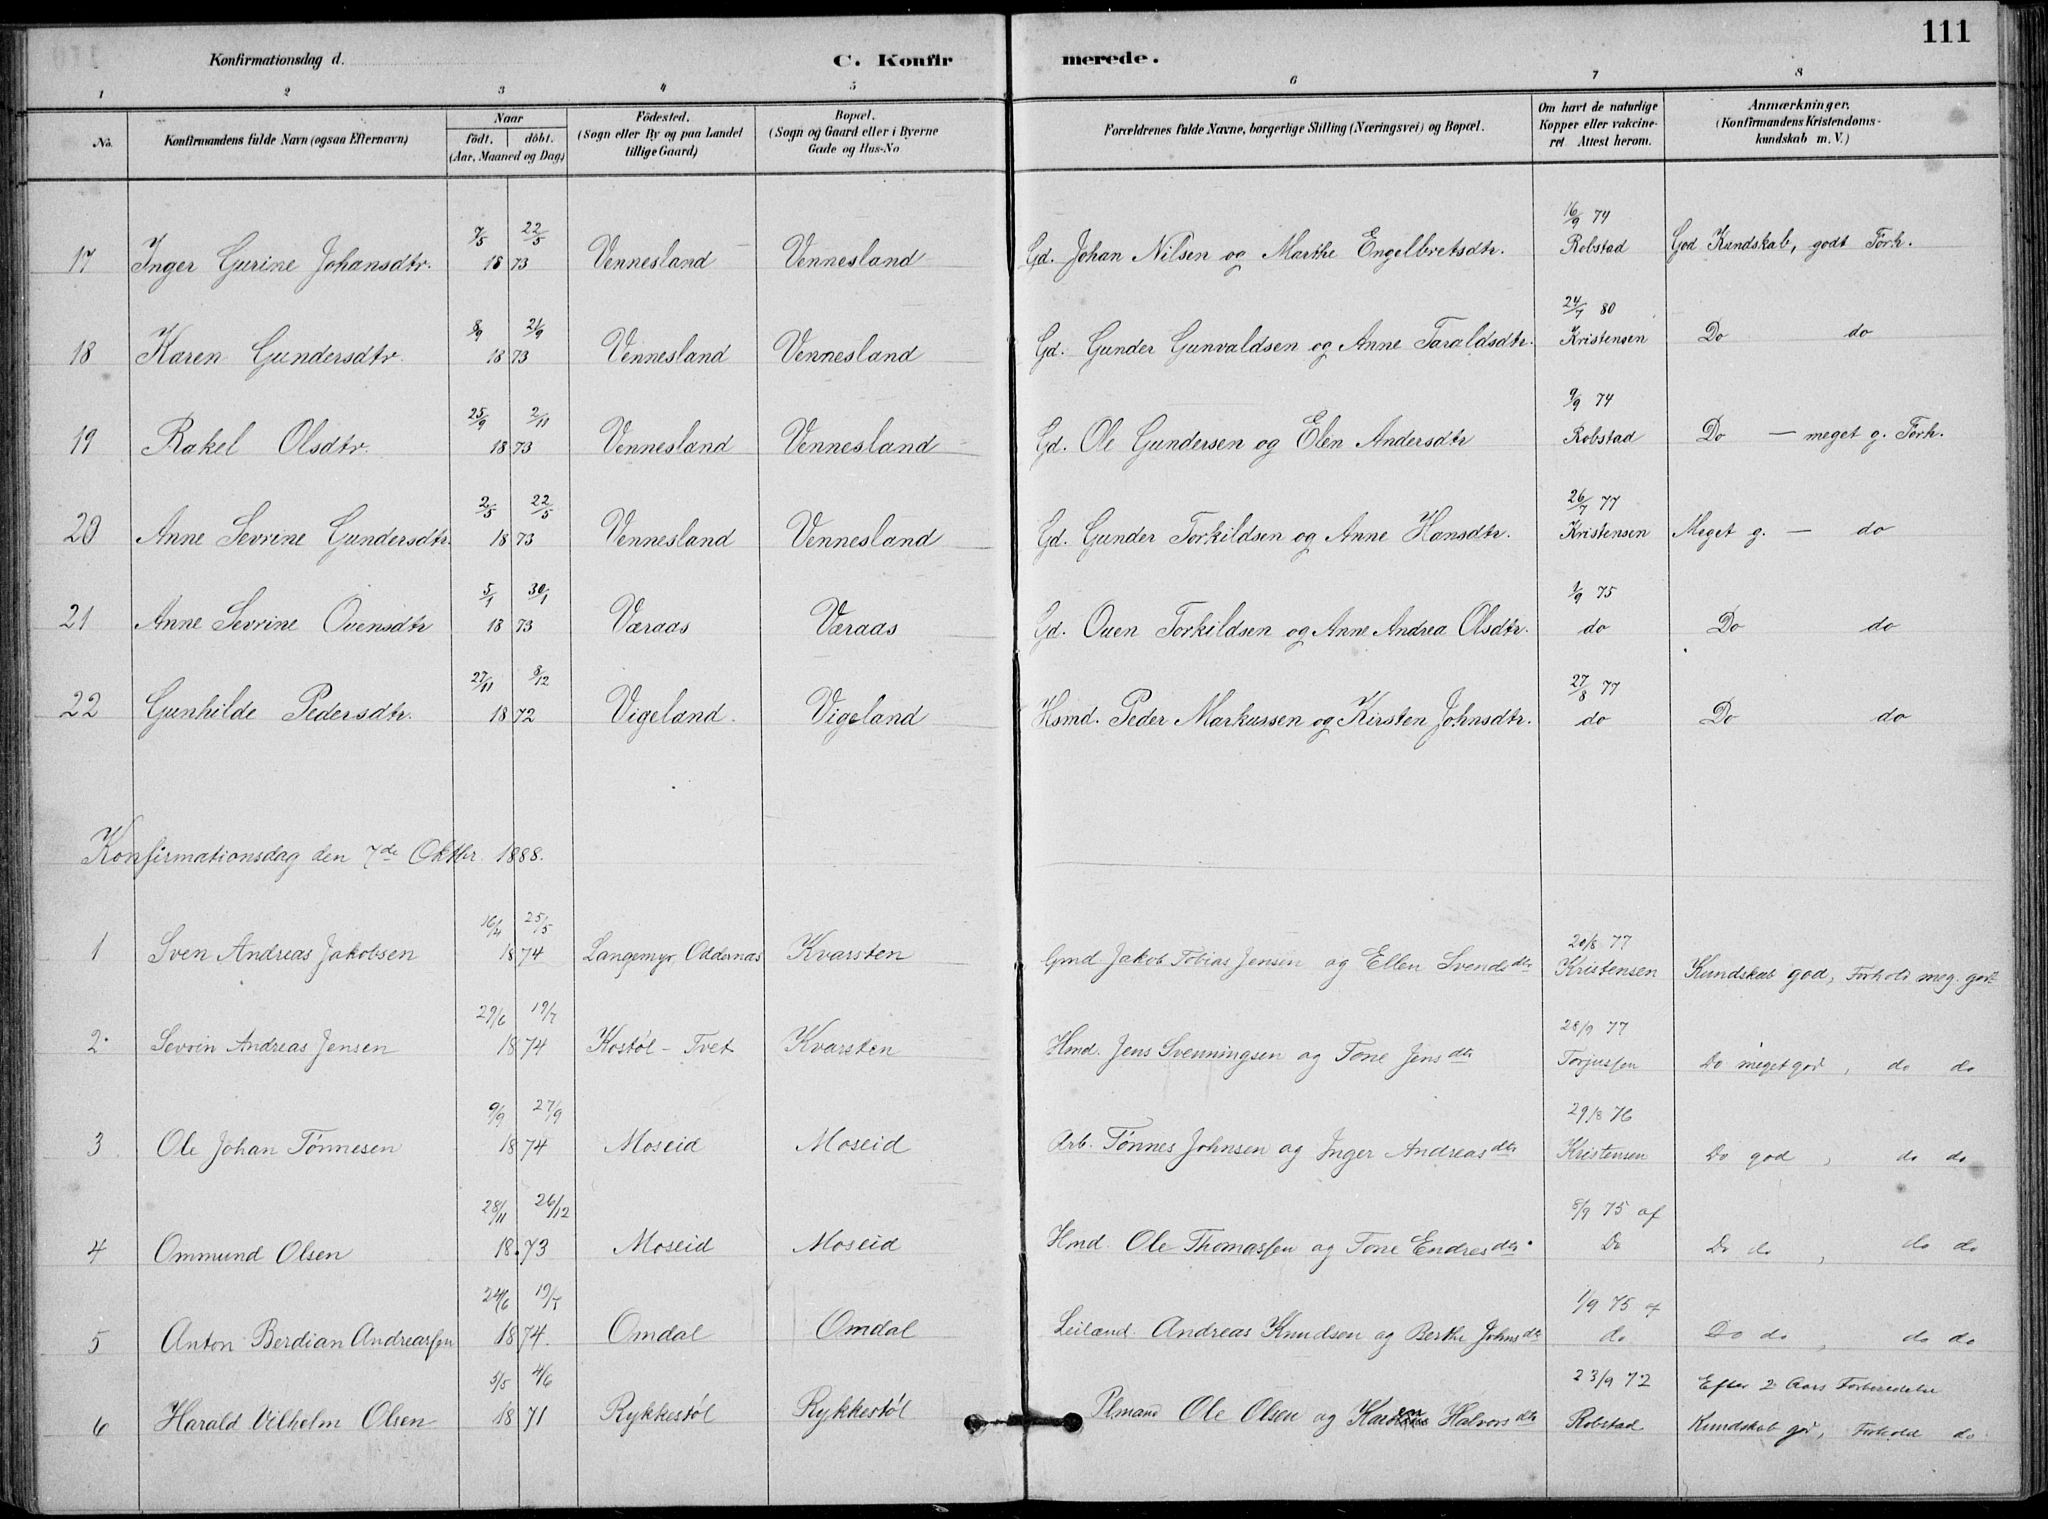 111
Konfirmationsdag d. C. Konfir merede.
1 2 3 4 5 6 7 8
No. Konfirmandens fulde Navn (ogsaa Efternavn) Naar födt. döbt. (Aar, Maaned og Dag) Födested. (Sogn eller By og paa Landet tillige Gaard) Bopæl. (Sogn og Gaard eller i Byerne Gade og Hus-No Forældrenes fulde Navne, borgerlige Stilling (Næringsvei) og Bopæl. Om havt de naturlige Kopper eller vakcineret Attest herom. Anmærkninger. (Konfirmandens Kristendomskundskab m. V.)
7/5 22/5 16/9 74
17 Inger Gurine Johansdtr. 1873 Vennesland Vennesland Gd. Johan Nilsen og Marthe Engelbretsdtr. Robstad God Kundskab, godt Forh.
8/9 21/9 24/7 80
18 Karen Gundersdtr. 1873 Vennesland Vennesland Gd. Gunder Gunvaldsen og Anne Taraldsdtr. Kristensen Do do
25/9 2/11 9/9 74
19 Rakel Olsdtr. 1873 Vennesland Vennesland Gd. Ole Gundersen og Elen Andersdtr Robstad Do — meget g. Forh.
2/5 22/5 26/7 77
20 Anne Sevrine Gundersdtr. 1873 Vennesland Vennesland Gd. Gunder Torkildsen og Anne Hansdtr. Kristensen Meget g. — do
5/1 30/1 1/9 75
21 Anne Sevrine Ouensdtr 1873 Væraas Væraas Gd. Ouen Torkildsen og Anne Andrea Olsdtr. do Do do
27/11 8/12 27/8 77
22 Gunhilde Pedersdtr. 1872 Vigeland. Vigeland Hsmd. Peder Markussen og Kirsten Johnsdtr. do Do do
Konfirmationsdag den 7de Oktbr. 1888.
16/4 25/5 20/8 77
1 Sven Andreas Jakobsen 1874 Langemyr, Oddernas Kvarsten Gmd Jakob Tobias Jensen og Ellen Svendsdtr Kristensen Kundskab god, Forhold meg. godt
29/6 19/7 28/9 77
2. Sevrin Andreas Jensen 1874 Kostøl - Tvet Kvarsten Hmd. Jens Svenningsen og Tone Jensdtr Torjussen Do meget god, do do
9/9 27/9 29/8 76
3 Ole Johan Tönnesen 1874 Moseid Moseid Arb. Tönnes Johnsen og Inger Andreasdtr Kristensen Do god, do do
28/11 26/12 8/9 75 af
4 Ommund Olsen 18.73 Moseid Moseid Hmd. Ole Thomassen og Tone Endresdtr. Do Do do, do do
24/6 19/7 1/9 75 af
5 Anton Berdian Andreassen 1874. Omdal Omdal Leilænd. Andreas Knudsen og Berthe Johnsdtr do Do do, do do
5/5 4/6 23/9 72 Efter 2 Aars Forberedelse
6 Harald Vilhelm Olsen 1871 Rykkestöl Rykkestöl Plmand Ole Olsen og Karen Halvorsdtr Robstad Kundskab god, Forhold do